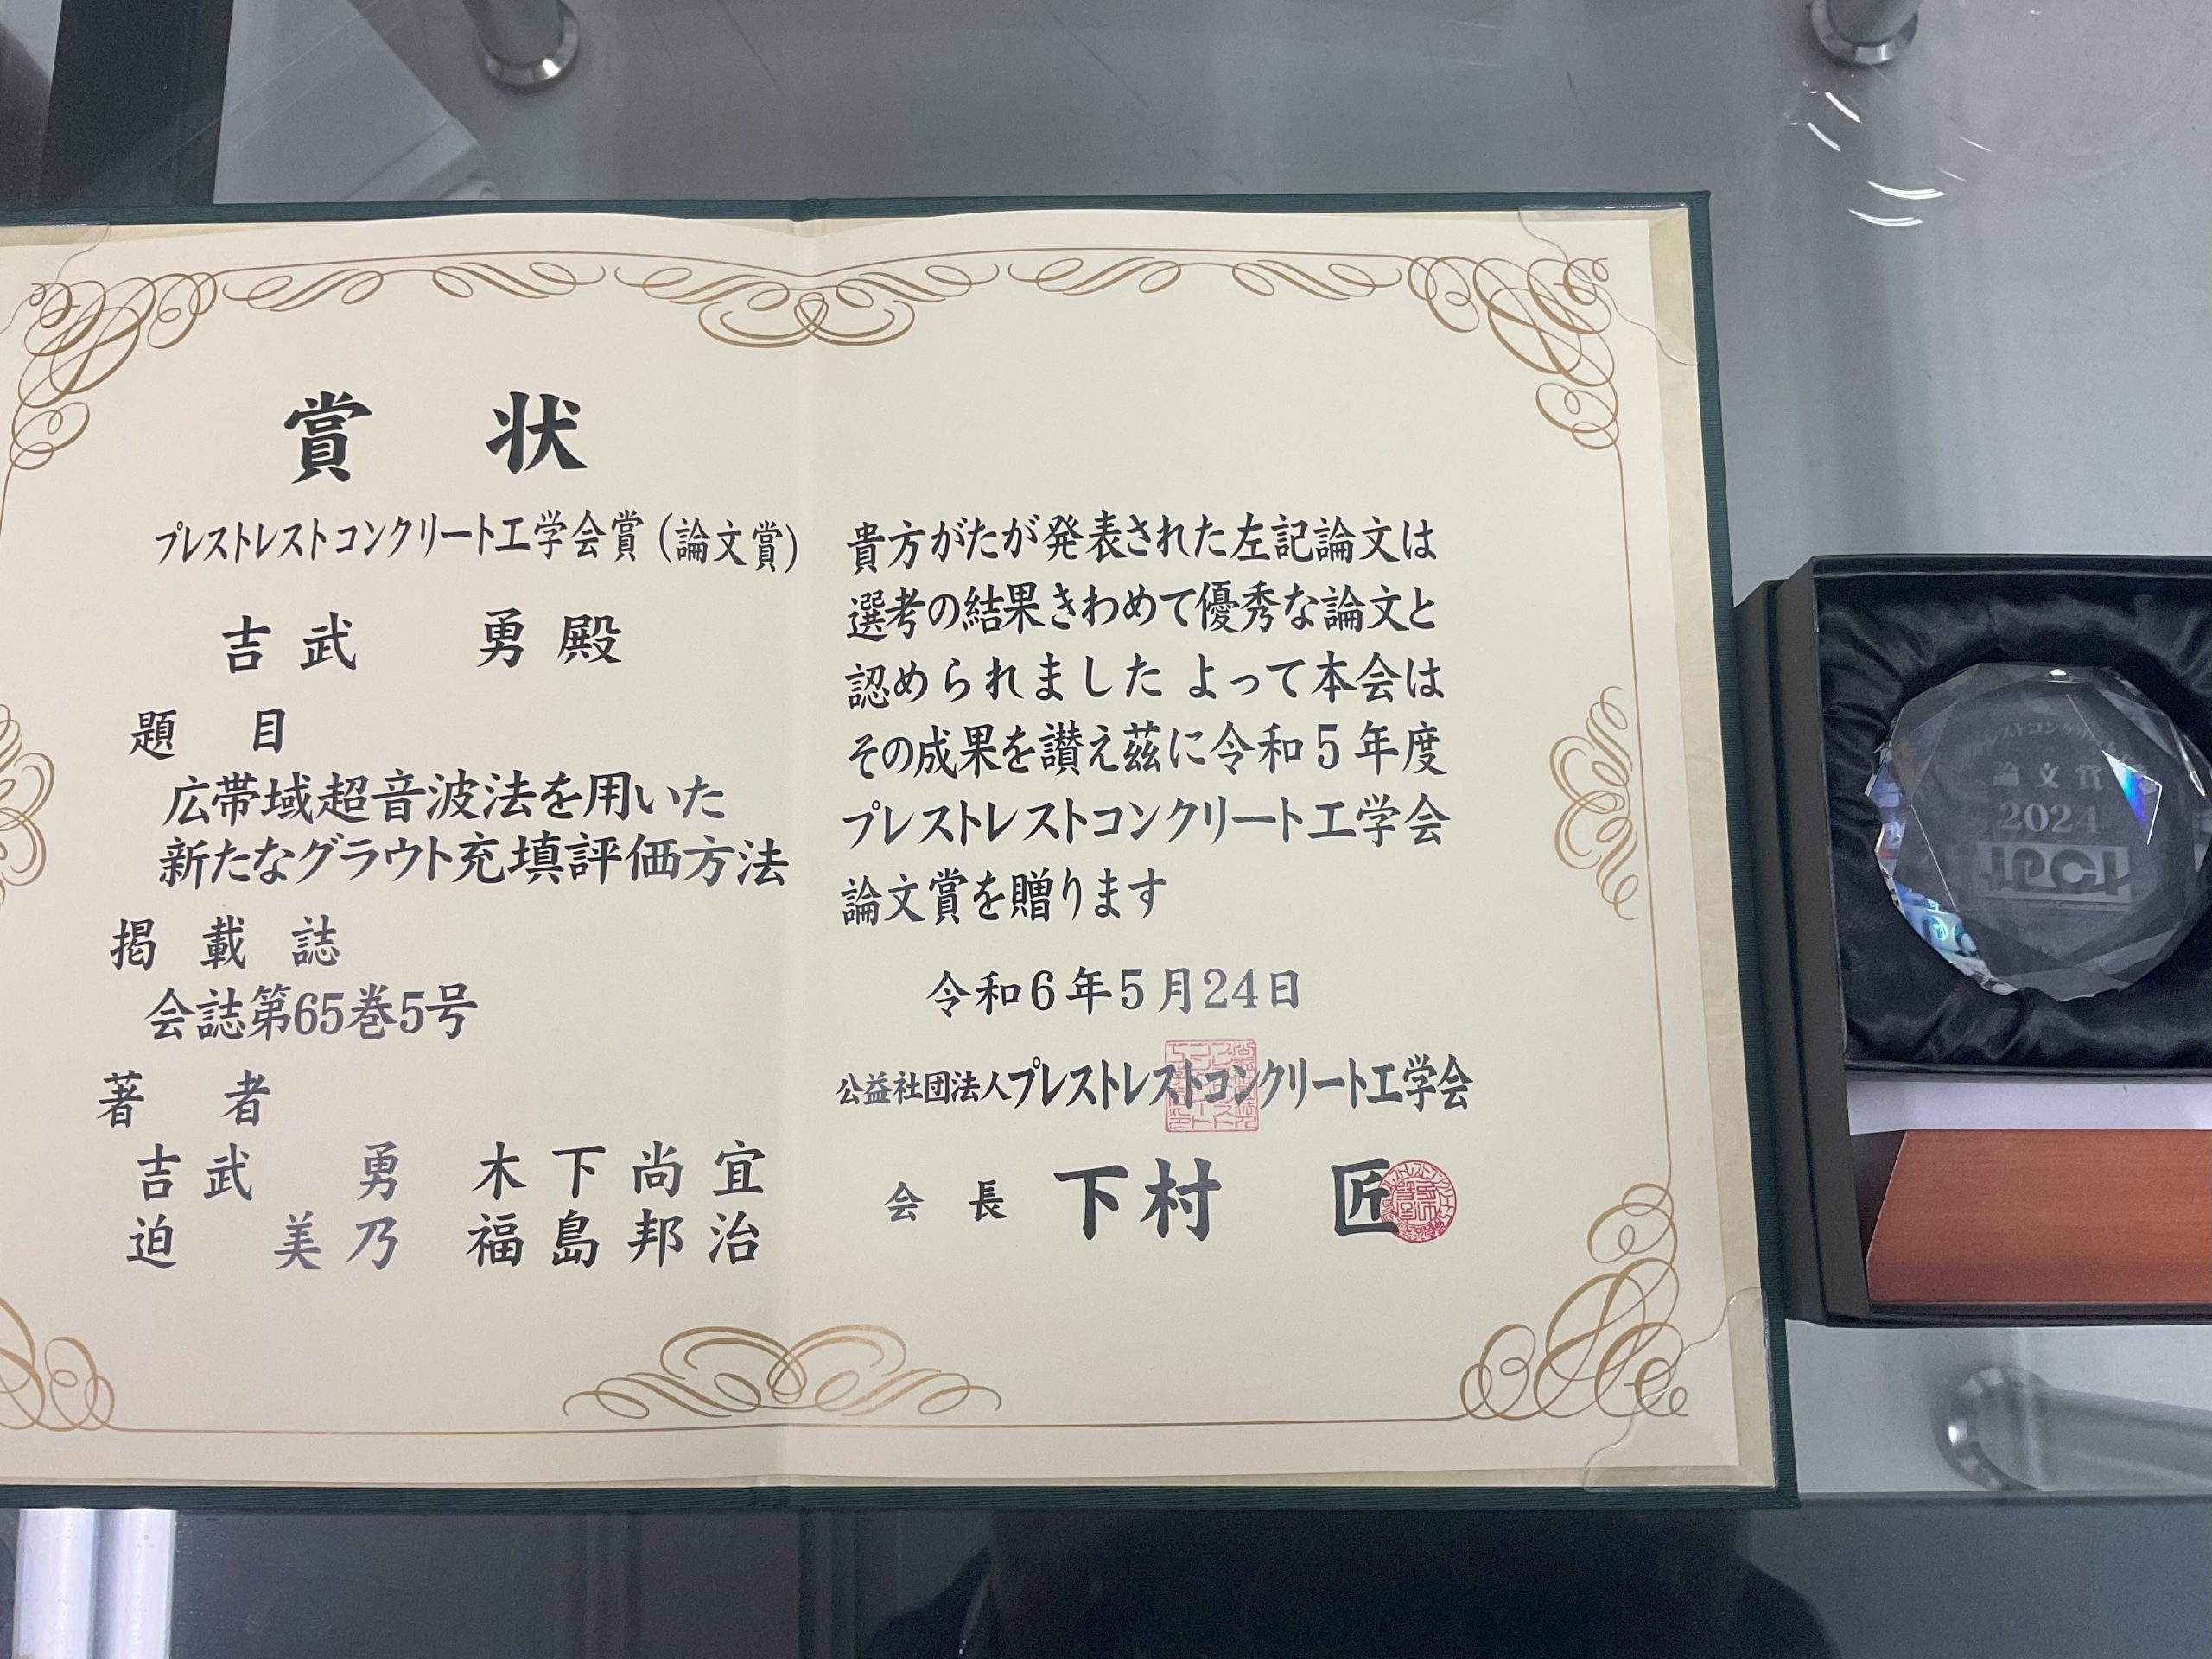 賞 状
プレストレストコンクリート工学会賞（論文賞）
吉武 勇 殿
題 目
広帯域超音波法を用いた
新たなグラウト充填評価方法
掲 載 誌
会誌第65巻5号
著 者
吉武 勇 木下尚宜
迫 美乃 福島邦治
貴方がたが発表された左記論文は
選考の結果きわめて優秀な論文と
認められました よって本会は
その成果を讃え茲に令和5年度
プレストレストコンクリート工学会
論文賞を贈ります
令和6年5月24日
公益社団法人プレストレストコンクリート工学会
会 長 下村 匠
論文賞
2024
JPCI